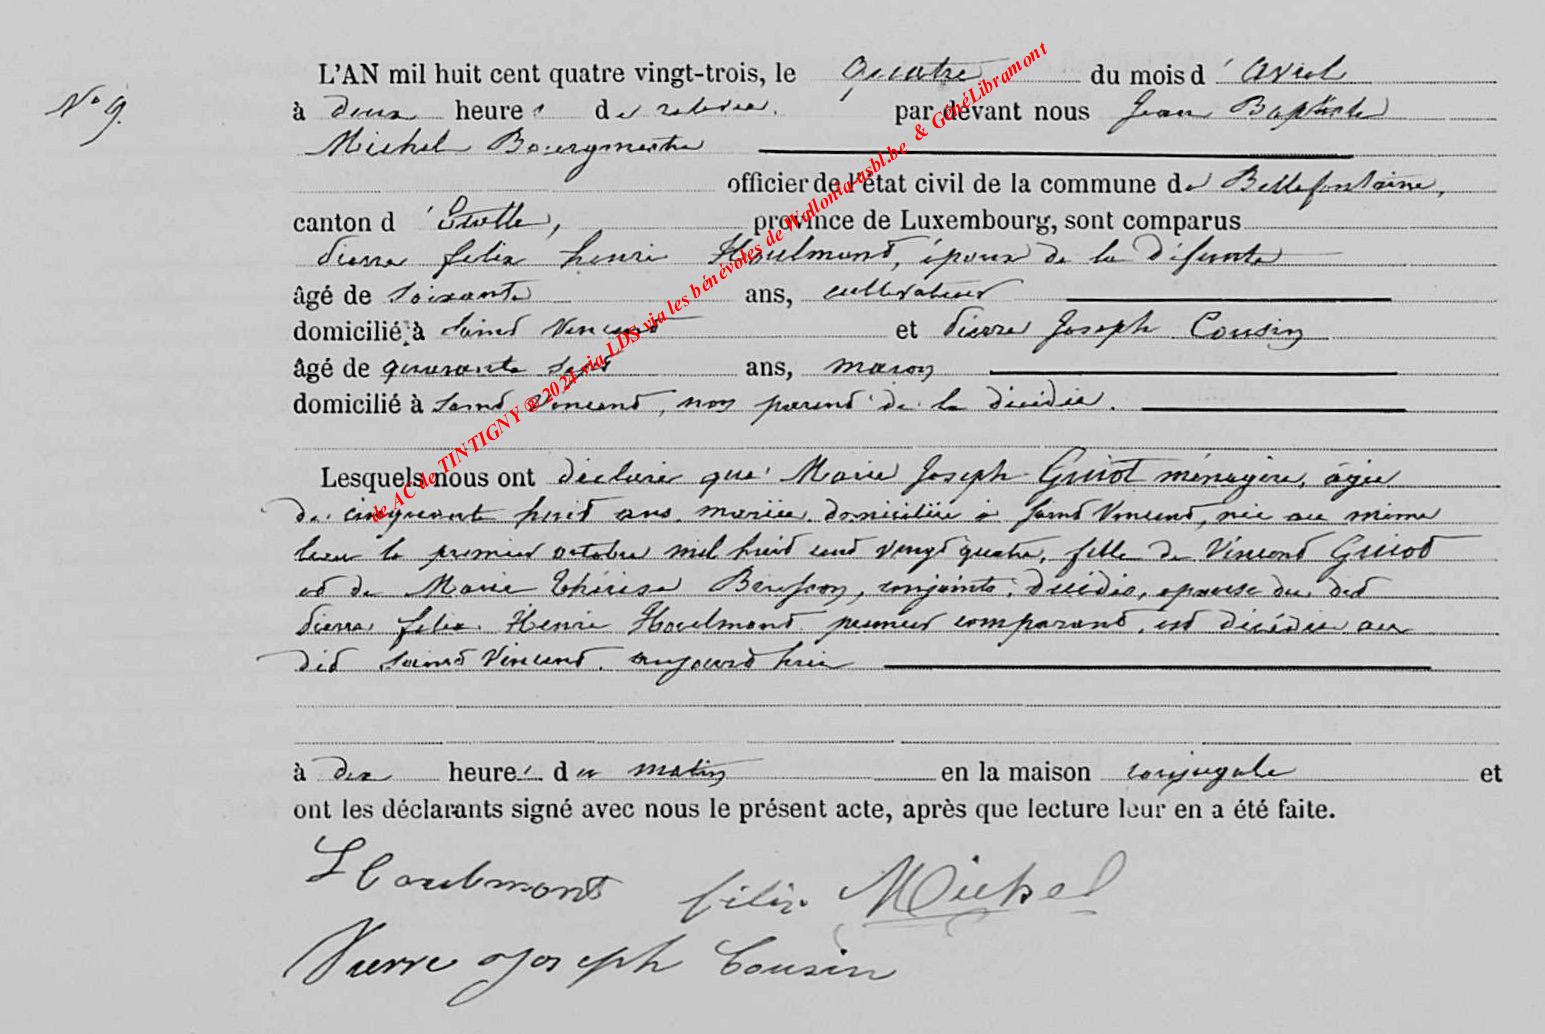 N° 9.
L'AN mil huit cent quatre vingt-trois, le quatre du mois d'avril
à deux heures de relevée. par devant nous Jean Baptiste
Michel Bourgmestre
officier de l'état civil de la commune de Bellefontaine,
canton d'Etalle, province de Luxembourg, sont comparus
Pierre felix henri Houlmont, époux de la défunte
âgé de soixante ans, cultivateur
domicilié à Saint Vincent et Pierre Joseph Cousin
âgé de quarante sept ans, maçon
domicilié à Saint Vincent, non parent de la décédée.
Lesquels nous ont déclaré que Marie Joseph Guiot ménagère, âgée
de cinquante huit ans, mariée, domiciliée à Saint Vincent, née au même
lieu le premier octobre mil huit cent vingt quatre, fille de Vincent Guiot
et de Marie Thérèse, conjoints décédés, épouse du dit
Pierre felix Henri Houlmont premier comparant, est décédée au
dit Saint Vincent, aujourd'hui
à dix heures du matin en la maison conjugale et
ont les déclarants signé avec nous le présent acte, après que lecture leur en a été faite.
Houlmont félix Michel
Pierre Joseph Cousin
de AC de TINTIGNY @ 2024 via LDS via les bénévoles de Wallonia-asbl.be & GénéLibramont